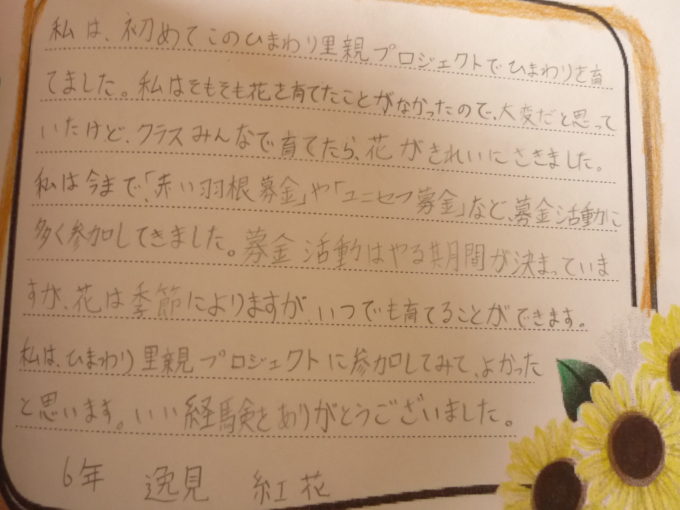 私は、初めてこのひまわり里親プロジェクトでひまわりを育
てました。私はそもそも花を育てたことがなかったので、大変だと思って
いたけど、クラスみんなで育てたら、花がきれいにさきました。
私は今まで、「赤い羽根募金」や「ユニセフ募金」など、募金活動に
多く参加してきました。募金活動はやる期間が決まっていま
すが、花は季節によりますが、いつでも育てることができます。
私は、ひまわり里親プロジェクトに参加してみて、よかった
と思います。いい経験をありがとうございました。
6年 逸見 紅花